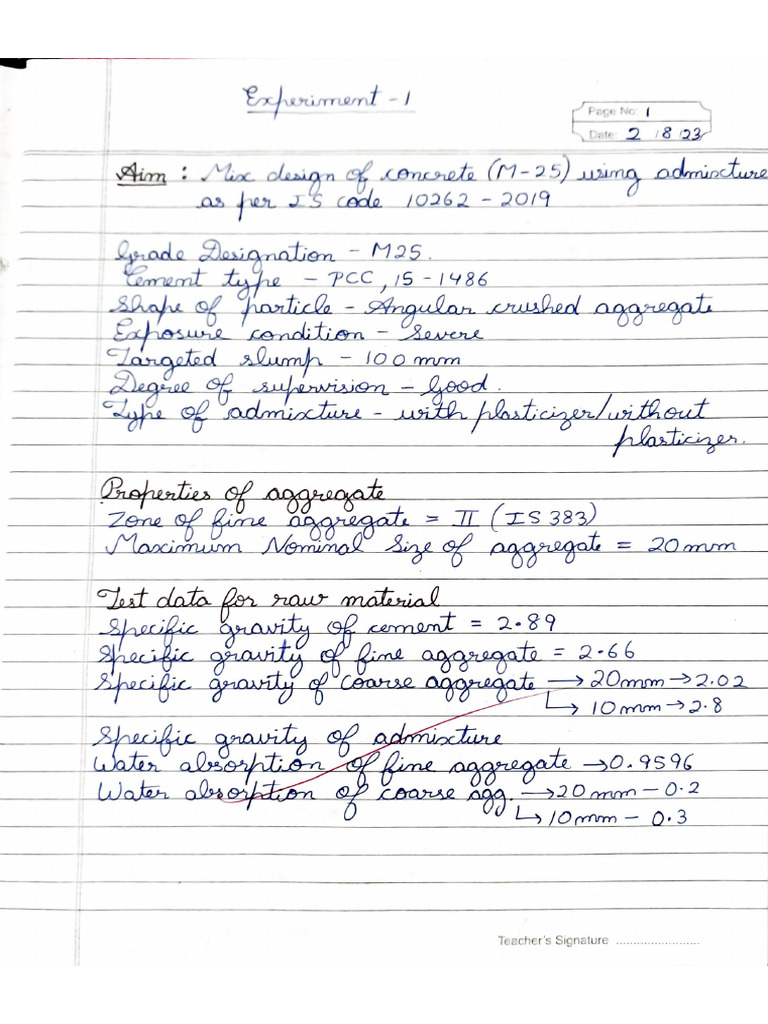 Experiment - 1
Page No: 1
Date: 2 /8 /23
Aim : Mix design of concrete (M-25) using admixture
as per IS code 10262 - 2019
Grade Designation - M25.
Cement type - PCC, 15-1486
Shape of particle - Angular crushed aggregate
Exposure condition - Severe
Targeted slump - 100 mm
Degree of supervision - Good.
Type of admixture - with plasticizer/without
plasticizer.
Properties of aggregate
Zone of fine aggregate = II (IS 383)
Maximum Nominal Size of aggregate = 20mm
Test data for raw material
Specific gravity of cement = 2.89
Specific gravity of fine aggregate = 2.66
Specific gravity of coarse aggregate → 20mm → 2.02
↳ 10mm → 2.8
Specific gravity of admixture
Water absorption of fine aggregate → 0.9596
Water absorption of coarse agg. → 20 mm - 0.2
↳ 10mm - 0.3
Teacher's Signature ........................